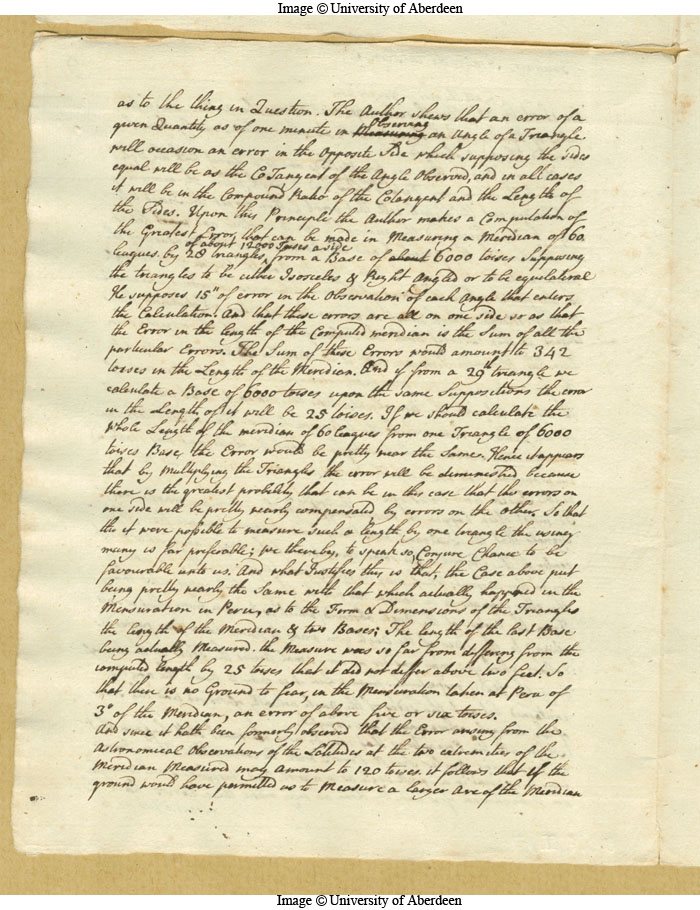 Image © University of Aberdeen
as to the thing in Question. The Author shews that an error of a
given Quantity as of one minute in Measuring observing an Angle of a Treangle
will occasion an error in the Opposite Side which supposing the sides
equal will be as the CoTangent of the Angle Observed, and in all cases
it will be in the Compound Ratio of the Cotangent and the Length of
the Sides. Upon this Principle the Author makes a Computation of
the Greatest Error that can be made in Measuring a Meridian of 60
of about 12000 Toises a side
leagues by 28 triangles, from a Base of about 6000 toises Supposing
the triangles to be either Isosceles & Right Angled or to be equilateral
He supposes 15" of error in the Observation of each Angle that enters
the Calculation. And that these errors are all on one side so as that
the Error in the length of the Computed meridian is the Sum of all the
particular Errors. The Sum of these Errors would amount to 342
toises in the Length of the Meridian. And if from a 29th triangle we
calculate a Base of 6000 toises upon the same Suppositions the error
in the Length of it will be 25 toises. If we should calculate the
whole Length of the meridian of 60 leagues from one Triangle of 6000
toises Base, the Error would be pretty near the Same. Hence it appears
that by Multiplying the Triangles the error will be diminished because
there is the greatest probility that can be in this case that the errors on
one side will be pretty nearly compensated by errors on the other. So that
tho it were possible to measure such a length by one triangle the using
many is far preferable; we thereby, to speak so, Conjure Chance to be
favourable unto us. And what Justifies this is that, the Case above put
being pretty nearly the Same with that which actually happned in the
Mensuration in Peru, as to the Form & Dimensions of the Triangles
the length of the Meridian & two Bases; The length of the last Base
being actually Measured. the Measure was so far from differing from the
computed length by 25 toises that it did not differ above two feet. So
that there is no Ground to fear, in the Mensuration taken at Peru of
3° of the Meridian, an error of above five or six toises.
And since it hath been formerly observed that the Error arising from the
Astronomical Observations of the Latitudes at the two extremities of the
Meridian Measured may amount to 120 toises. it follows that if the
ground would have permitted us to Measure a larger Arc of the Meridian
Image © University of Aberdeen